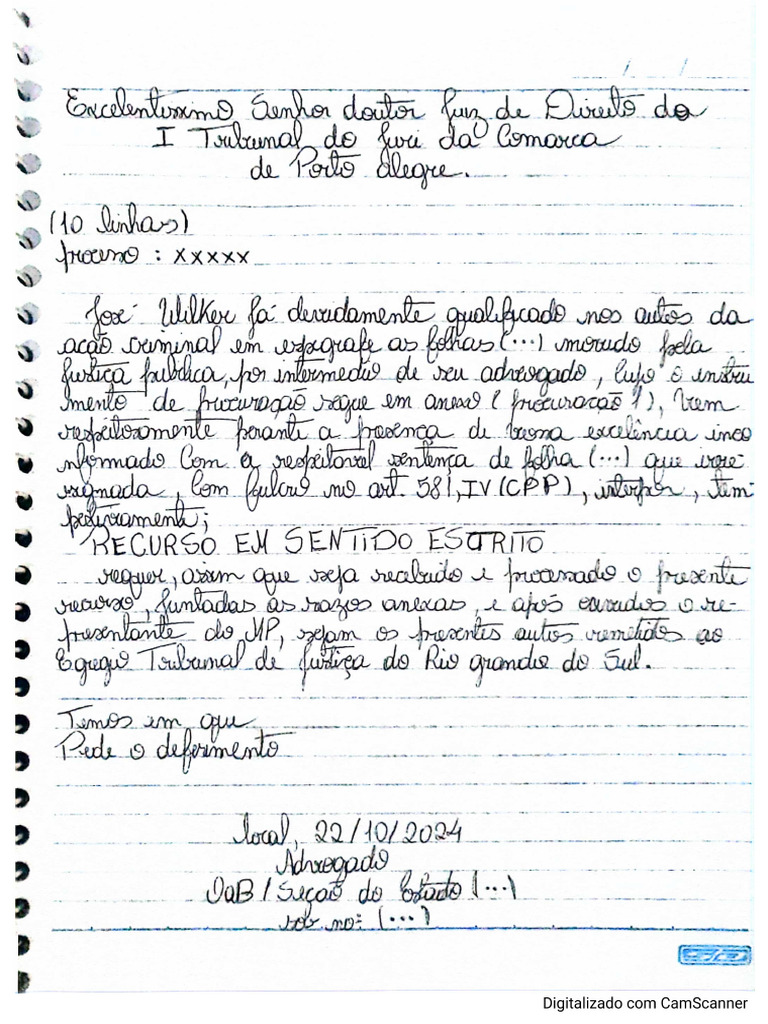 Excelentissimo Senhor doutor Juiz de Direito do
I Tribunal do Juri da Comarca
de Porto alegre.
(10 linhas)
processo : xxxxx
José Wilker já devidamente qualificado nos autos da
acão criminal em espigrafe as folhas (...) movido pela
Justiça pública, por intermedio de seu advogado, Cujo o instru
mento de procuração segue em anexo (procuracao 1), Vem
respeitosamente perante a presença de vossa excelência inco
nformado Com a respeitavel sentença de folha (...) que
, Com fulcro no art. 581, IV (CPP), interpor, tem-
pestivamente;
RECURSO EM SENTIDO ESCRITO
requer, assim que seja recebido e processado o presente
recurso, juntadas as razos anexas, e após ouvidos o re-
presentante do MP, sejam os presentes autos remetidos ao
Egregio Tribunal de Justiça do Rio grande do Sul.
Temos em que
Pede o deferimento
local, 22/10/2024
Advogado
OaB / Seção do Estado (...)
sob no: (...)
Digitalizado com CamScanner